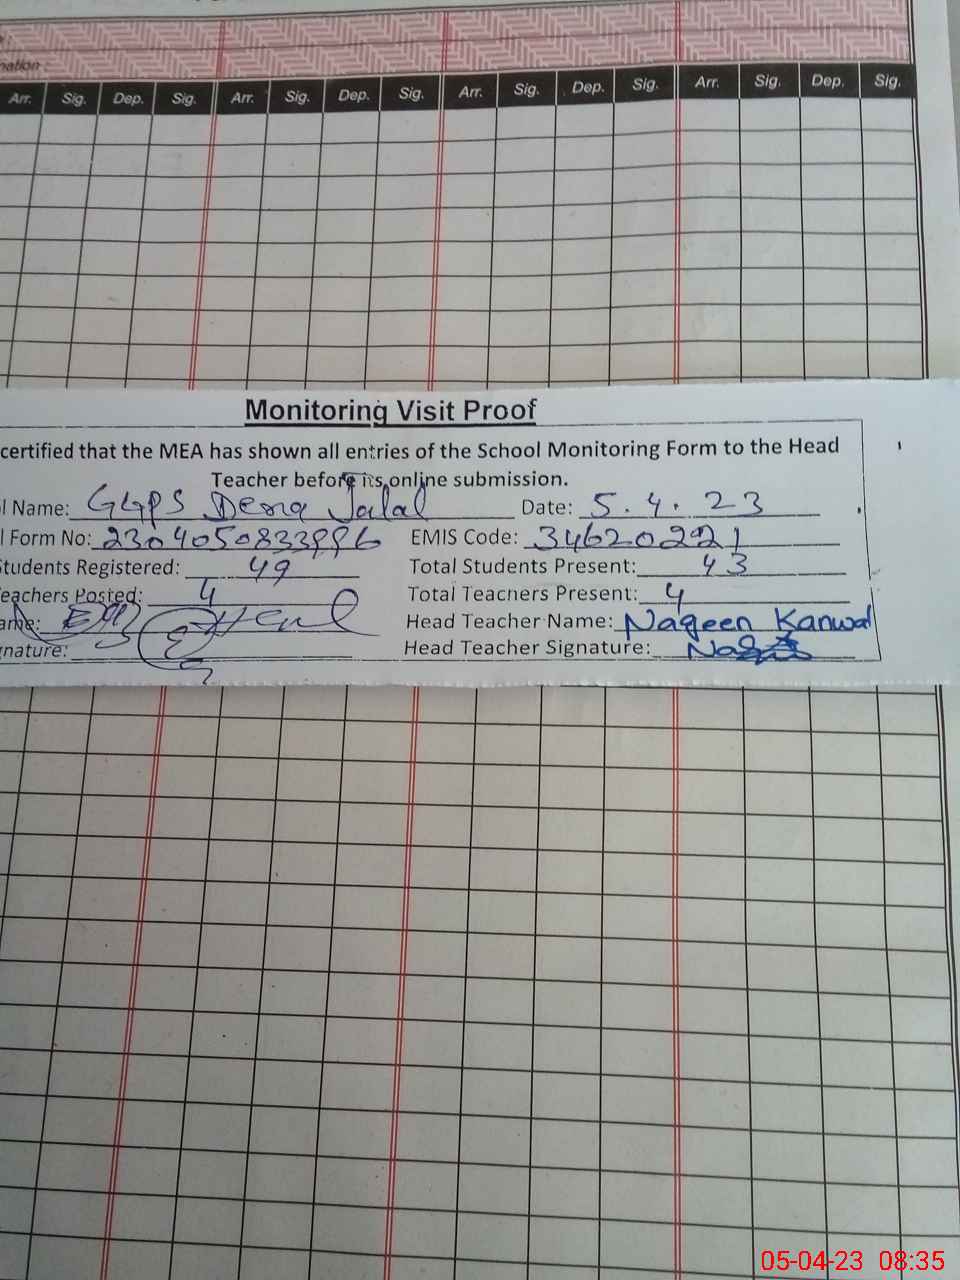 nation :
Arr. Sig. Dep. Sig. Arr. Sig. Dep. Sig. Arr. Sig. Dep. Sig. Arr. Sig. Dep. Sig.
Monitoring Visit Proof
certified that the MEA has shown all entries of the School Monitoring Form to the Head
Teacher before its online submission.
l Name: GGPS Dera Jalal Date: 5.4.23
l Form No: EMIS Code: 34620221
Students Registered: 49 Total Students Present: 43
eachers Posted: 4 Total Teachers Present: 4
ame: Head Teacher Name: Nageen Kanwal
gnature: Head Teacher Signature:
05-04-23 08:35